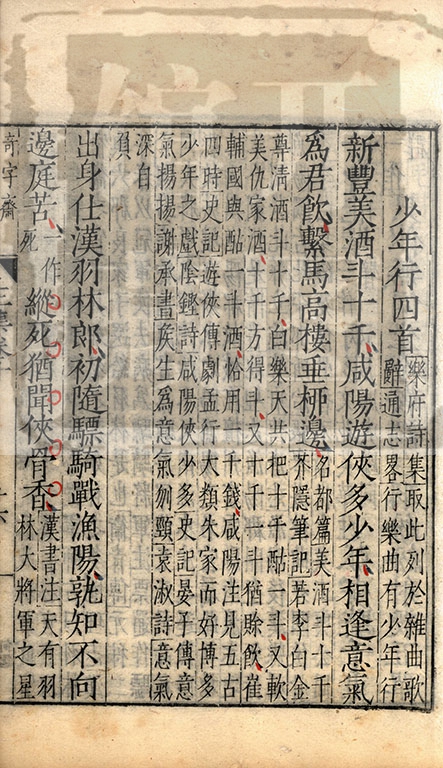 少年行四首
樂府詩集取此列於雜曲歌
辭通志畧行樂曲有少年行
新豐美酒斗十千咸陽遊俠多少年相逢意氣
為君飲繫馬高樓垂桞邊
名都篇美酒斗十千
芥隱筆記若李白金
尊清酒斗十千白樂天共把十千酤一斗又軟
美仇家酒十千方得斗又十千一斗猶賒飲崔
輔國與酤一斗酒恰用一千錢咸陽注見五古
四時史記遊俠傳劇孟行大類朱家而好博多
少年之戲陰鏗詩咸陽俠少多史記晏子傳意
氣揚揚謝承書侯生為意氣刎頸袁淑詩意氣
深自
負
出身仕漢羽林郎初隨驃騎戰漁陽孰知不向
邊庭苦
一作
死
縱死猶聞俠骨香
漢書注天有羽
林大將軍之星
奇字齋